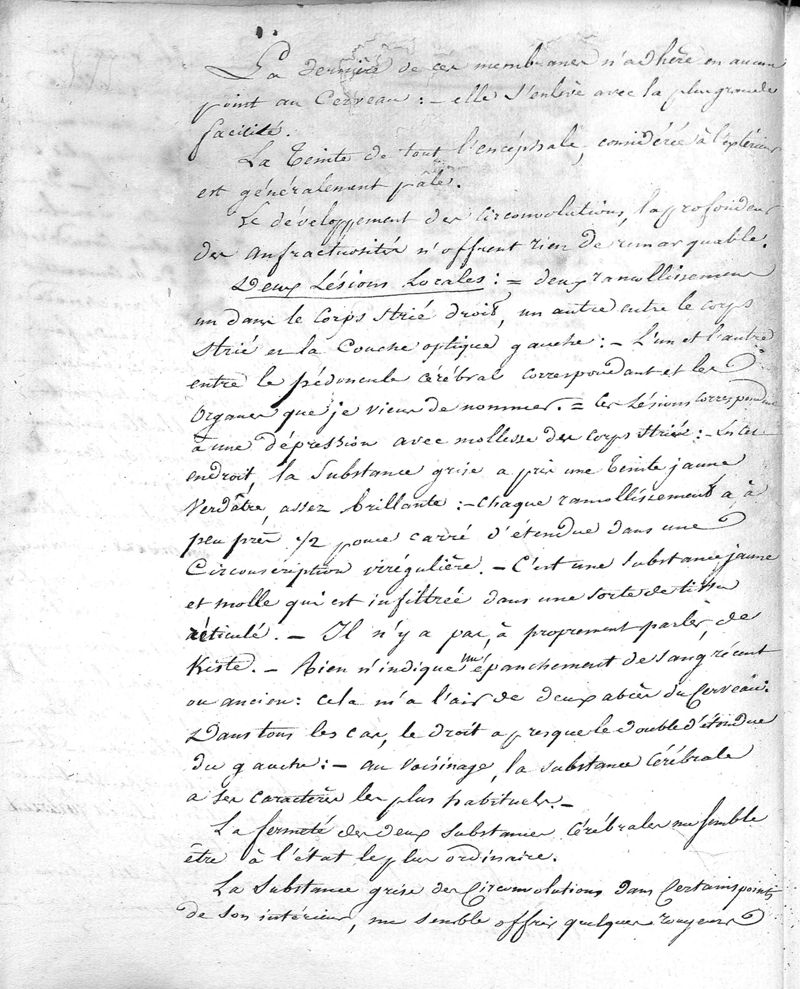 La dernière de ces membranes n'adhère en aucun
point au Cerveau : – elle s'enlève avec la plus grande
facilité.
La Teinte de tout l'encéphale, considérée à l'extérieur
est généralement pâle.
Le développement des Circonvolutions, la profondeur
des anfractuosités n'offrent rien de remarquable.
Deux Lésions Locales : = deux ramollissemens
un dans le Corps Strié droit, un autre entre le corps
Strié et la Couche optique gauche : – L'un et l'autre
entre le pédoncule cérébral correspondant et les
Organes que je viens de nommer. = Ces Lésions correspondent
à une dépression avec mollesse des Corps Striés : – En cet
endroit, la Substance grise a pris une Teinte jaune
Verdâtre, assez brillante : – Chaque ramollissement a à
peu près 1/2 pouce carré d'étendue dans une
Circonscription irrégulière. – C'est une substance jaune
et molle qui est infiltrée dans une sorte de tissu
réticulé. – Il n'y a pas, à proprement parler, de
Kiste. – Rien n'indique un épanchement de Sang récent
ou ancien : cela m'a l'air de deux abcès du Cerveau.
Dans tous les cas, le droit a presque le double d'étendue
du gauche : – au voisinage, la substance Cérébrale
a ses caractères les plus habituels. –
La fermeté des deux Substances Cérébrales me semble
être à l'état le plus ordinaire.
La Substance grise des Circonvolutions dans Certains points
de son intérieur, me semble offrir quelques rougeurs